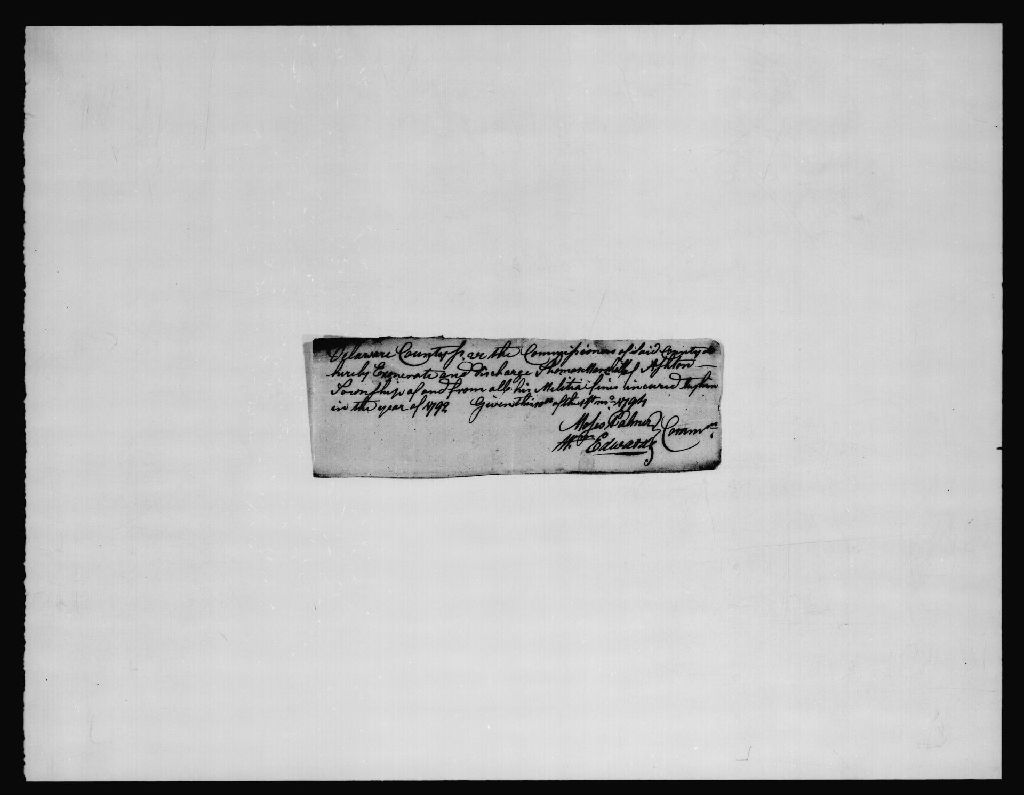 Delaware County ss, we the Commissioners of Said County do
hereby Exonerate and discharge Thomas Marshall of Ashton
Township of and from all his Militia fine incured therein
in the year of 1792 Given this of the mo. 1794
Moses Palmer
Edwards Commrs.